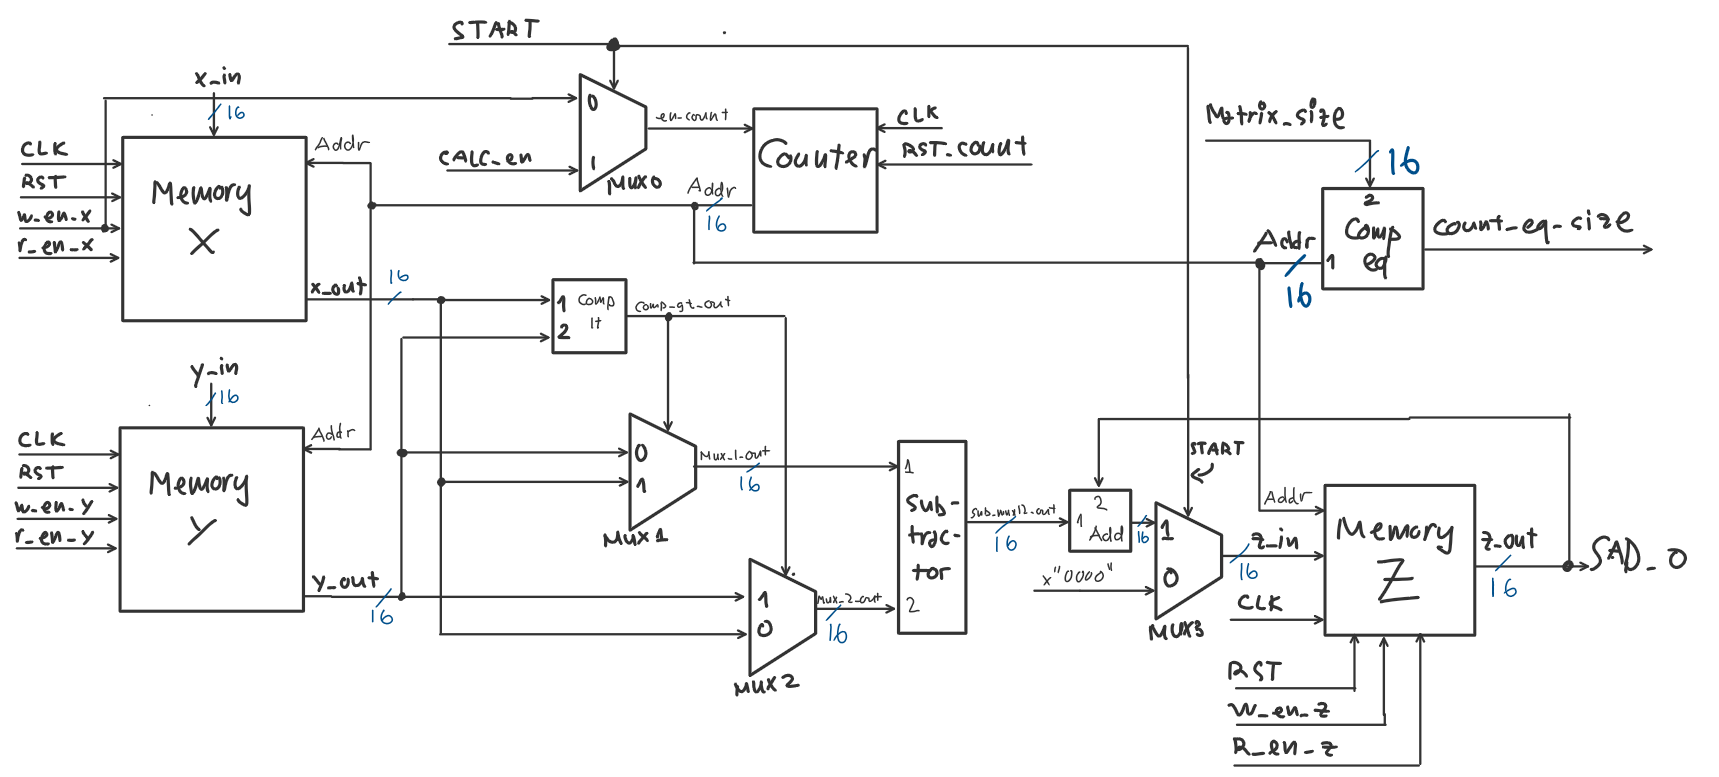 START
x_in
16
CLK
RST
w_en_x
r_en_x
Memory
X
Addr
x_out
16
0
1
MUX0
CALC_en
en_count
Counter
CLK
RST_count
Addr
16
Matrix_size
16
2
Comp
eq
1
Addr
16
count_eq_size
1
2
Comp
lt
Comp_gt_out
y_in
16
CLK
RST
w_en_y
r_en_y
Memory
Y
Addr
y_out
16
0
1
Mux1
Mux_1_out
16
1
0
MUX2
Mux_2_out
16
1
Sub-
trac-
tor
2
sub_mux12_out
16
2
1
Add
16
x"0000"
START
1
0
MUX3
z_in
16
CLK
Addr
Memory
Z
z_out
16
SAD_O
RST
W_en_z
R_en_z